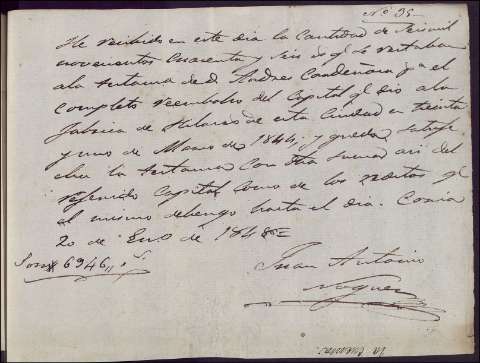 Nº 95
He recibido en este dia la Cantidad de Seis mil
novecientos Cuarenta y seis rs qe le restaban
a la testama de D. Andres Candeñosa pa el
completo reembolso del Capital qe dio a la
fabrica de Hilados de esta Ciudad en treinta
y uno de Marzo de 1844; y queda satisfe
cha la testama con dha suma asi del
referido Capital como de los reditos qe
el mismo debengo hasta el dia. Coria
20 de Eno de 1848=
Son 6946,, rs
Juan Antonio
Noguer
la Cuenta: